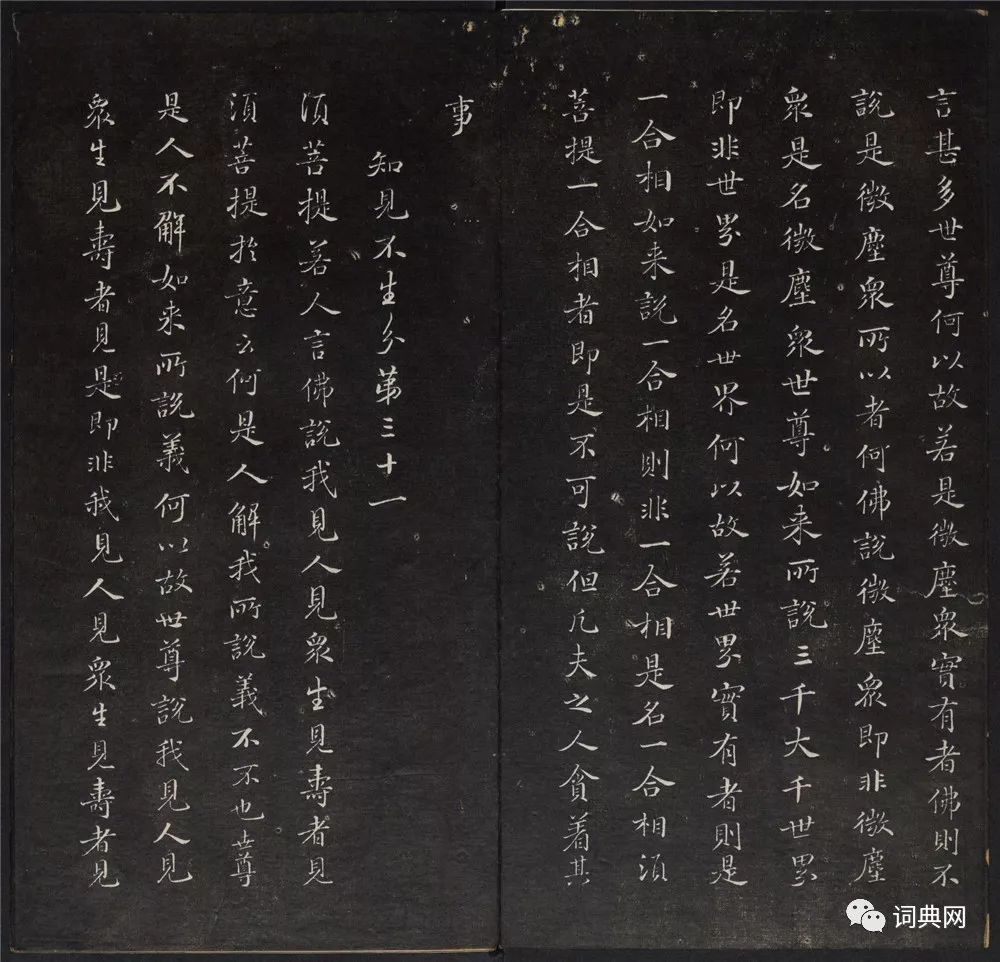 言甚多世尊何以故若是微塵眾實有者佛則不
說是微塵眾所以者何佛說微塵眾即非微塵
眾是名微塵眾世尊如来所說三千大千世界
即非世界是名世界何以故若世界實有者則是
一合相如来說一合相則非一合相是名一合相須
菩提一合相者即是不可說但凡夫之人貪着其
事
知見不生分第三十一
須菩提若人言佛說我見人見眾生見壽者見
須菩提於意云何是人解我所說義不不也世尊
是人不解如来所說義何以故世尊說我見人見
眾生見壽者見是即非我見人見眾生見壽者見
词典网